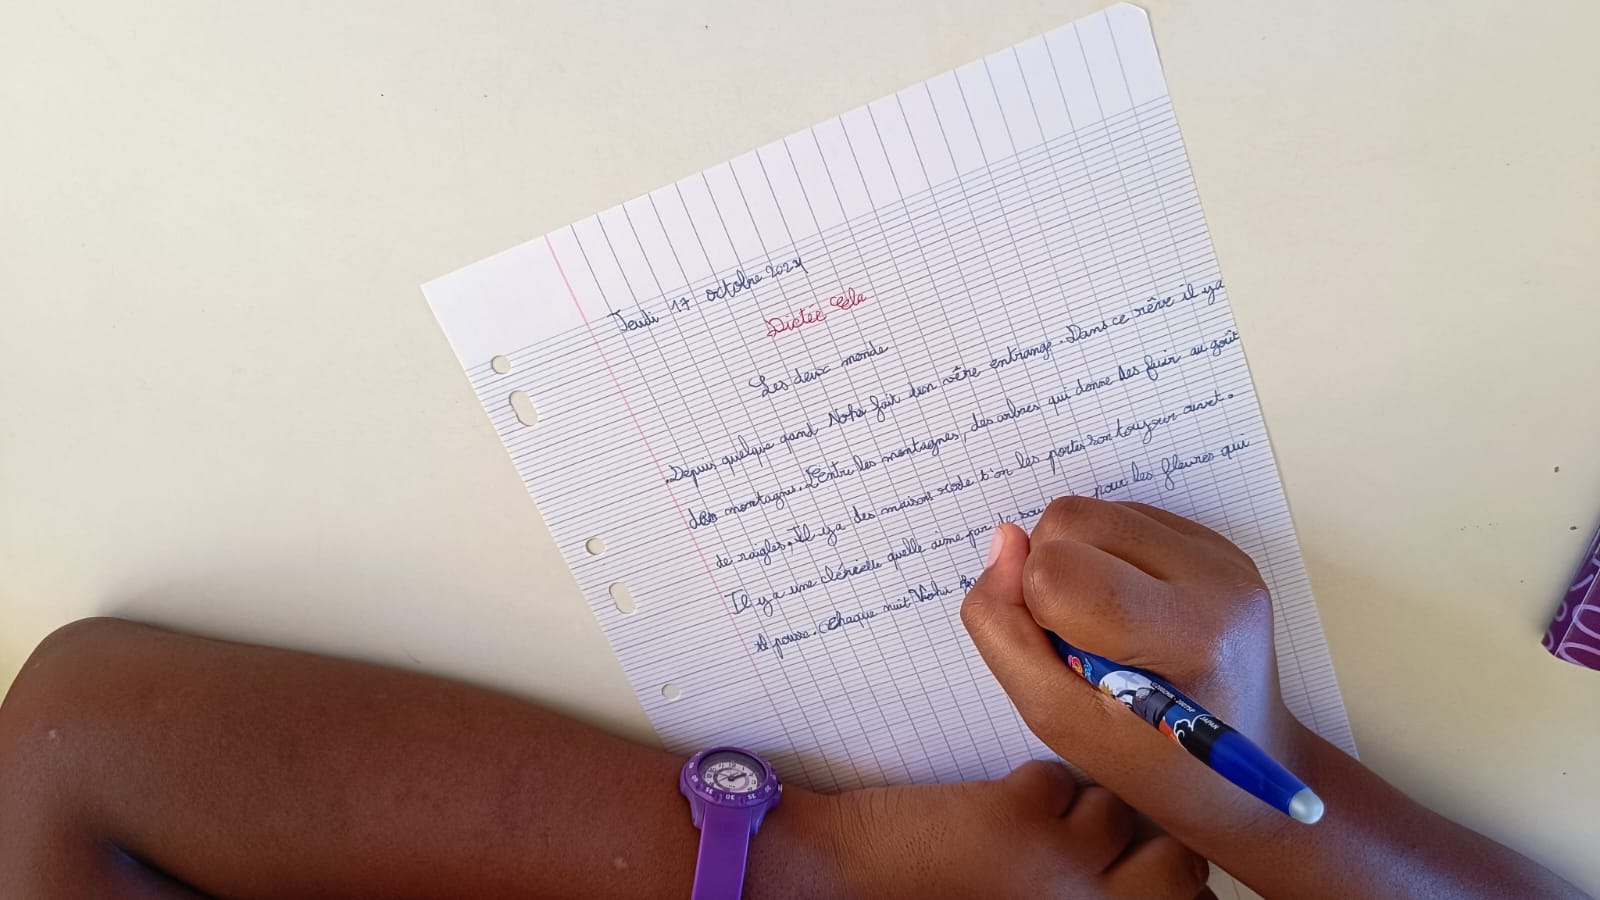 Jeudi 17 octobre 2024
Dictée
Les deux monde
Depuis quelque quand Noha fait un rêve entrange. Dans ce rêve il y a
des montagne. Entre les montagnes, des arbres qui donne des fuir au goût
de raigles. Il y a des maison rode t'on les portes son toujour ouvet.
Il y a une clérielle quelle aime par de sou pour les fleures qui
pousse. Chaque nuit
JAPAN